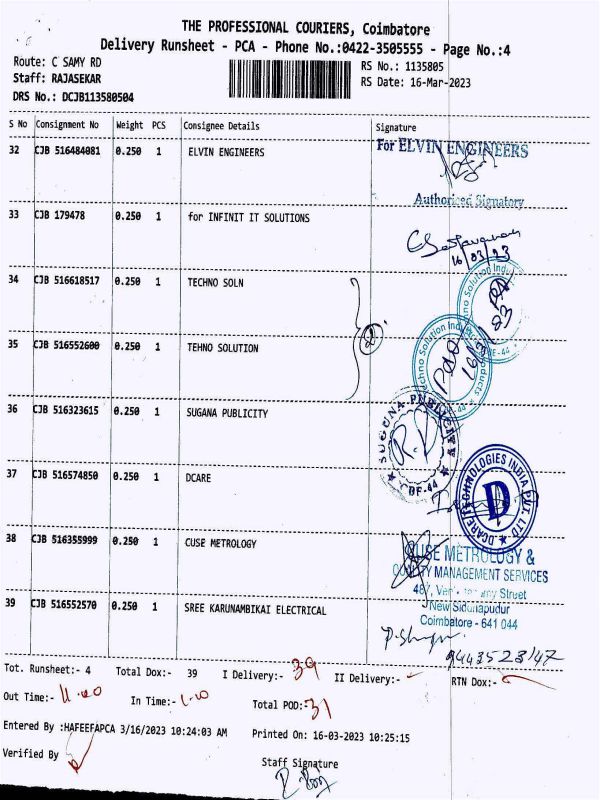 THE PROFESSIONAL COURIERS, Coimbatore
Delivery Runsheet - PCA - Phone No.:0422-3505555 - Page No.:4
Route: C SAMY RD
RS No.: 1135805
Staff: RAJASEKAR
RS Date: 16-Mar-2023
DRS No.: DCJB113580504
S No Consignment No Weight PCS Consignee Details Signature
32 CJB 516484081 0.250 1 ELVIN ENGINEERS
For ELVIN ENGINEERS
Authorised Signatory
33 CJB 179478 0.250 1 for INFINIT IT SOLUTIONS
16/03/23
34 CJB 516618517 0.250 1 TECHNO SOLN
35 CJB 516552600 0.250 1 TEHNO SOLUTION
Techno Solution Industrial Products
36 CJB 516323615 0.250 1 SUGANA PUBLICITY
SUGUNA PUBLICITY
CBE-44
37 CJB 516574850 0.250 1 DCARE
DCARE TECHNOLOGIES INDIA PVT. LTD
D
38 CJB 516355999 0.250 1 CUSE METROLOGY
CUSE METROLOGY &
QUALITY MANAGEMENT SERVICES
Street
New Sidhapudur
Coimbatore - 641 044
39 CJB 516552570 0.250 1 SREE KARUNAMBIKAI ELECTRICAL
9443523147
Tot. Runsheet:- 4 Total Dox:- 39 I Delivery:- 39 II Delivery:- RTN Dox:-
Out Time:- 11.00 In Time:- 1.00 Total POD:- 31
Entered By :HAFEEFAPCA 3/16/2023 10:24:03 AM Printed On: 16-03-2023 10:25:15
Verified By
Staff Signature